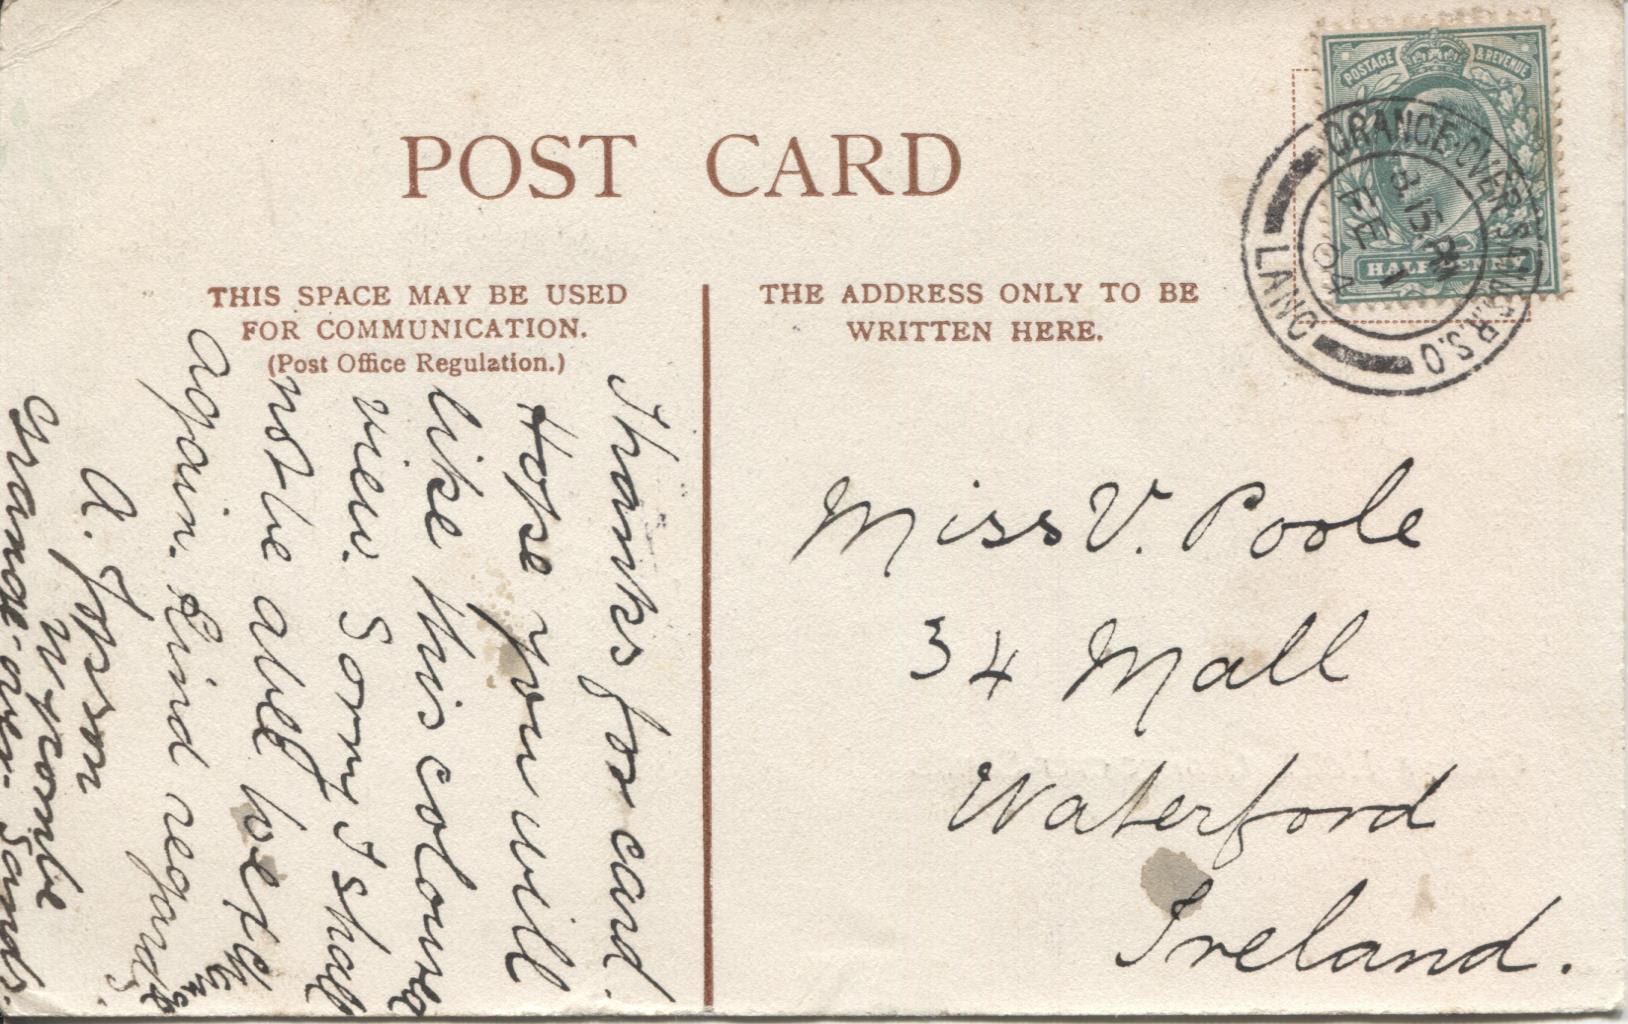 POST CARD
THIS SPACE MAY BE USED
FOR COMMUNICATION.
(Post Office Regulation.)
THE ADDRESS ONLY TO BE
WRITTEN HERE.
POSTAGE & REVENUE
HALFPENNY
GRANGE-OVER-SANDS.R.S.O
LANC
8.15 PM
FE 1
04
Thanks for card.
Hope you will
like this coloured
view. Sorry I shall
not be able to
again. Kind regards
A.
Wycombe
Grange-over-Sands.
Miss V. Poole
34 Mall
Waterford
Ireland.